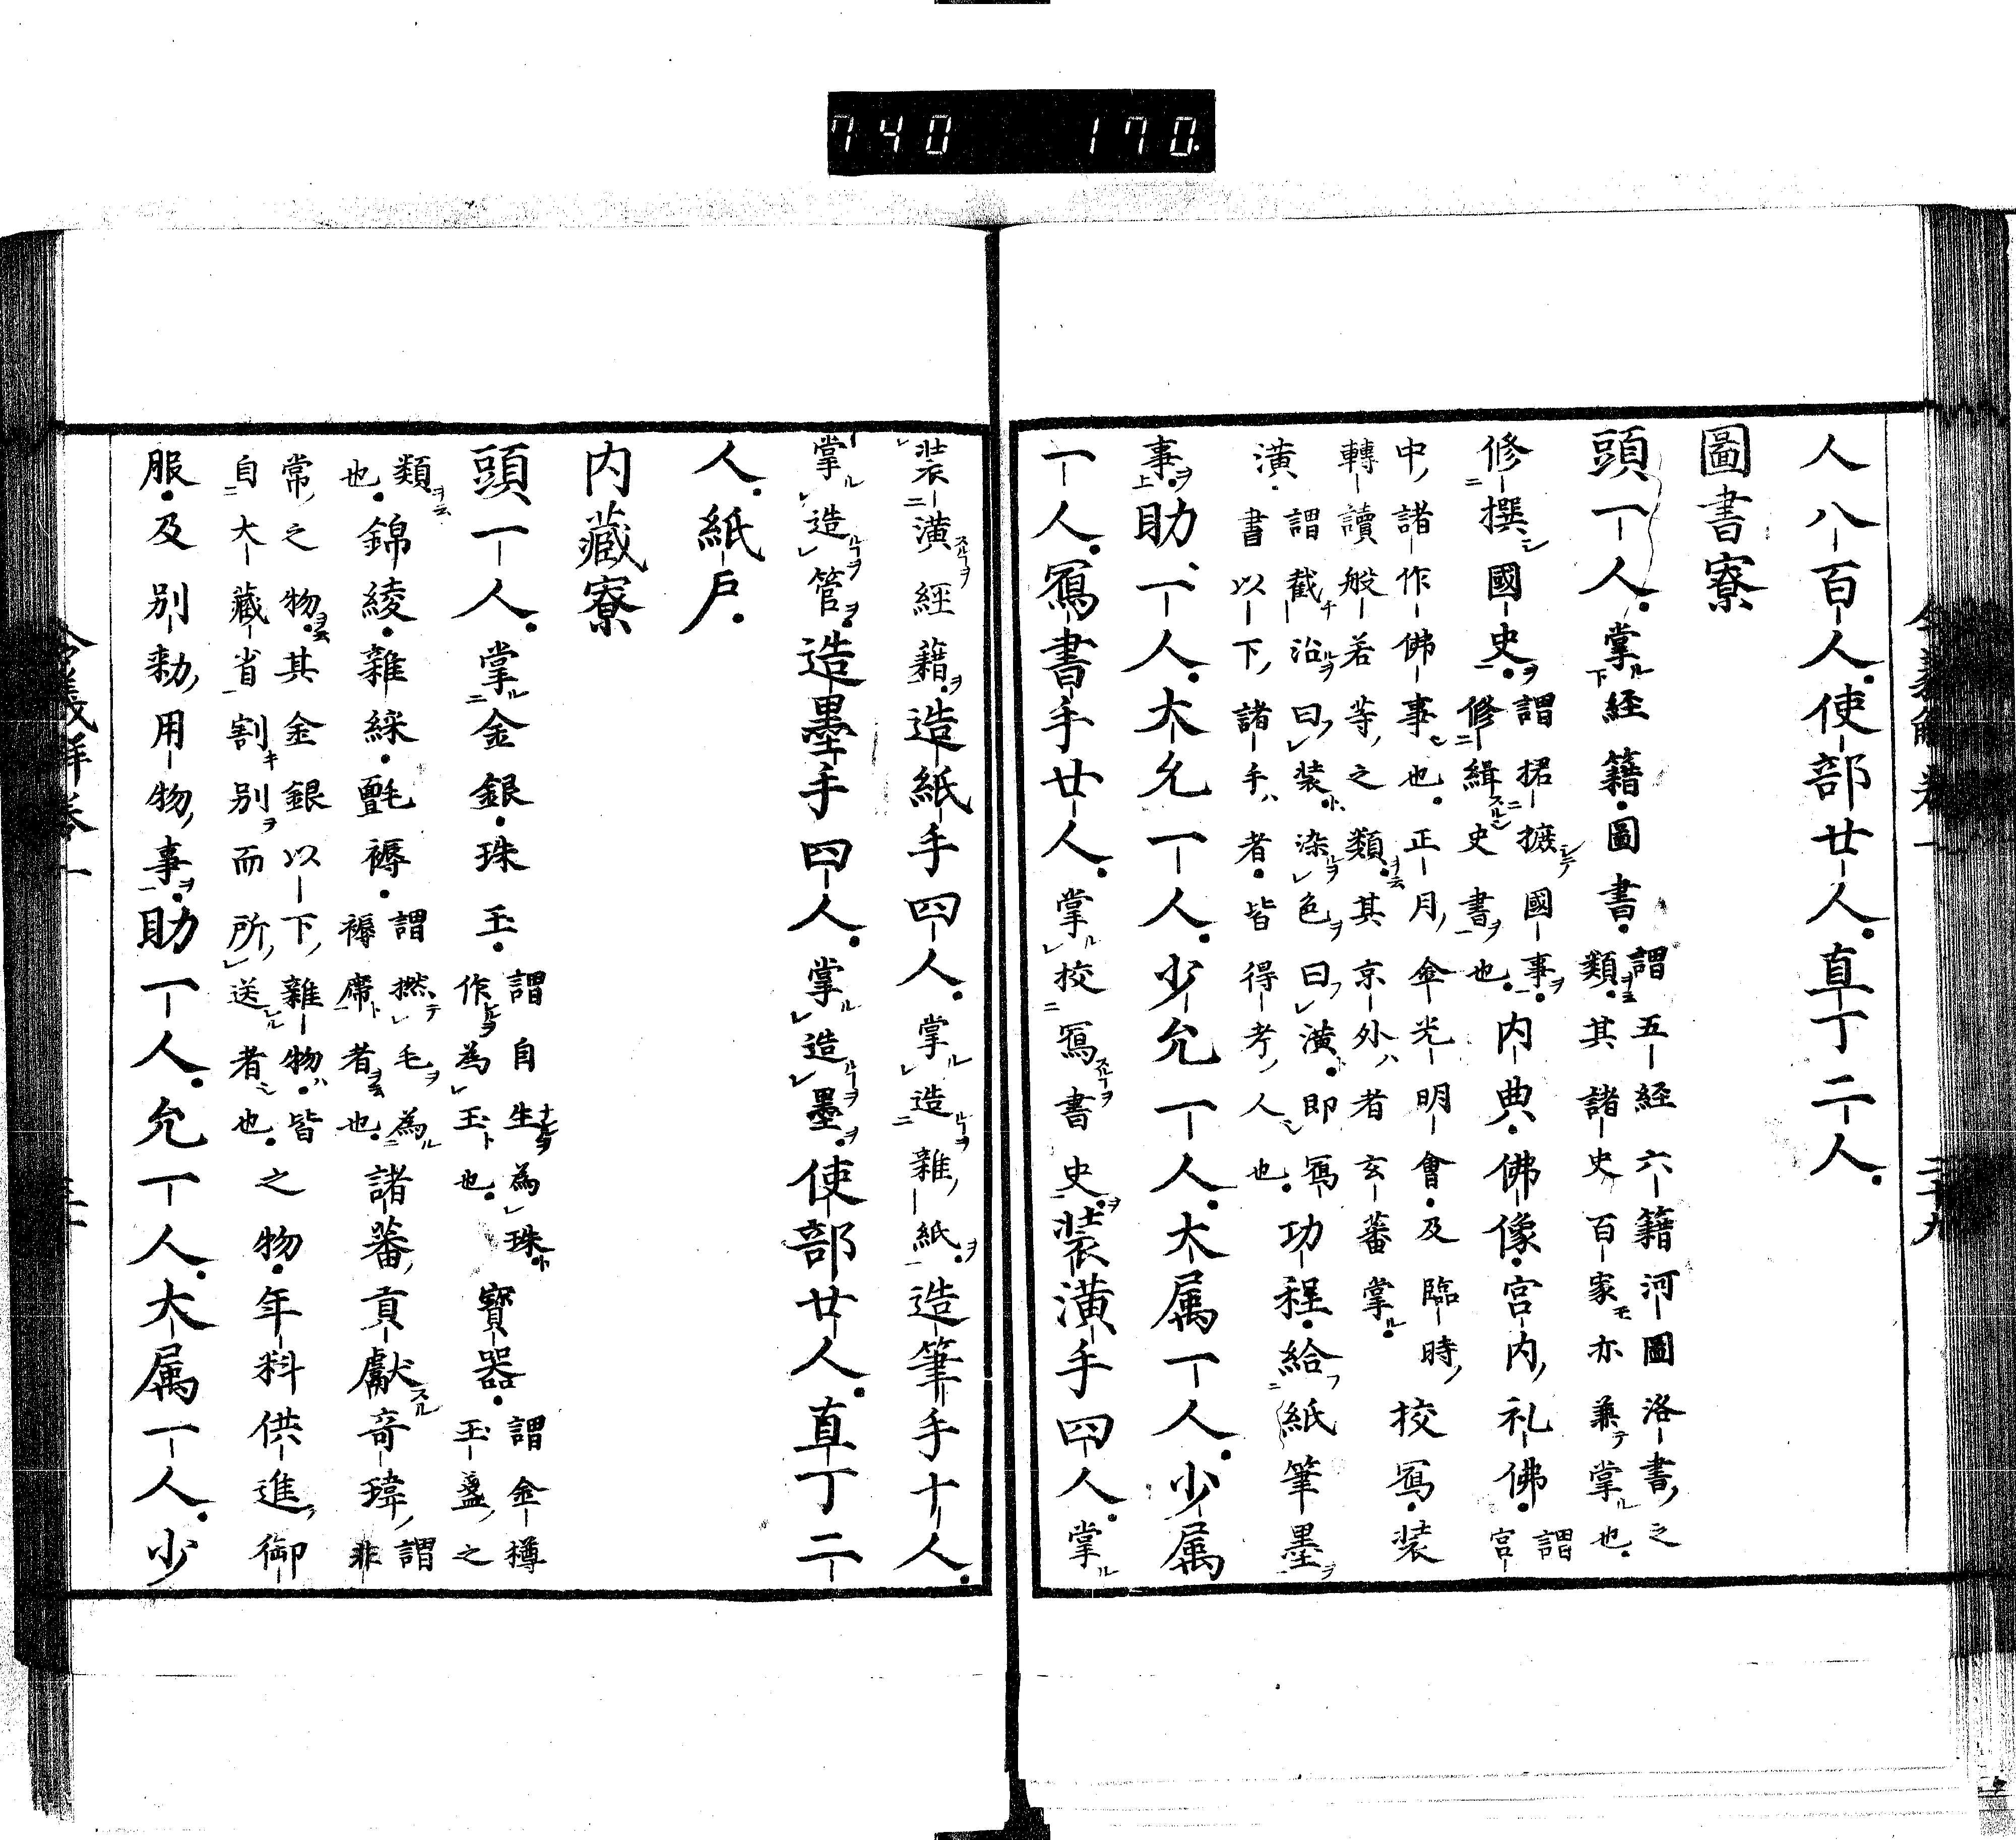 740 170.
人八百人。使部廿人。直丁二人。
圖書寮
頭一人。掌経籍・圖書。謂五経六籍河圖洛書之類。其諸史百家亦兼掌也。
修撰國史。謂捃摭國事修緝史書也。内典・佛像・宮内礼佛。謂宮
中諸作佛事也。正月金光明會・及臨時轉讀般若等之類。其京外者玄蕃掌。校寫・装
潢・謂截治曰装。染色曰潢。即寫書以下諸手者。皆得考人也。功程・給紙筆墨
事。助一人。大允一人。少允一人。大属一人。少属
一人。寫書手廿人。掌校寫書史。装潢手四人。掌
装潢經籍。造紙手四人。掌造雜紙。造筆手十人。
掌造管。造墨手四人。掌造墨。使部廿人。直丁二
人。紙戸。
内藏寮
頭一人。掌金銀・珠玉。謂自生為珠。作為玉也。寶器。謂金樽玉盞之
類也。錦綾・雜綵・氈褥。謂撚毛為褥席者也。諸蕃貢獻奇瑋謂非
常之物。其金銀以下雜物。皆自大藏省割別而所送者也。之物・年料供進御
服・及別勅用物事。助一人。允一人。大属一人。少